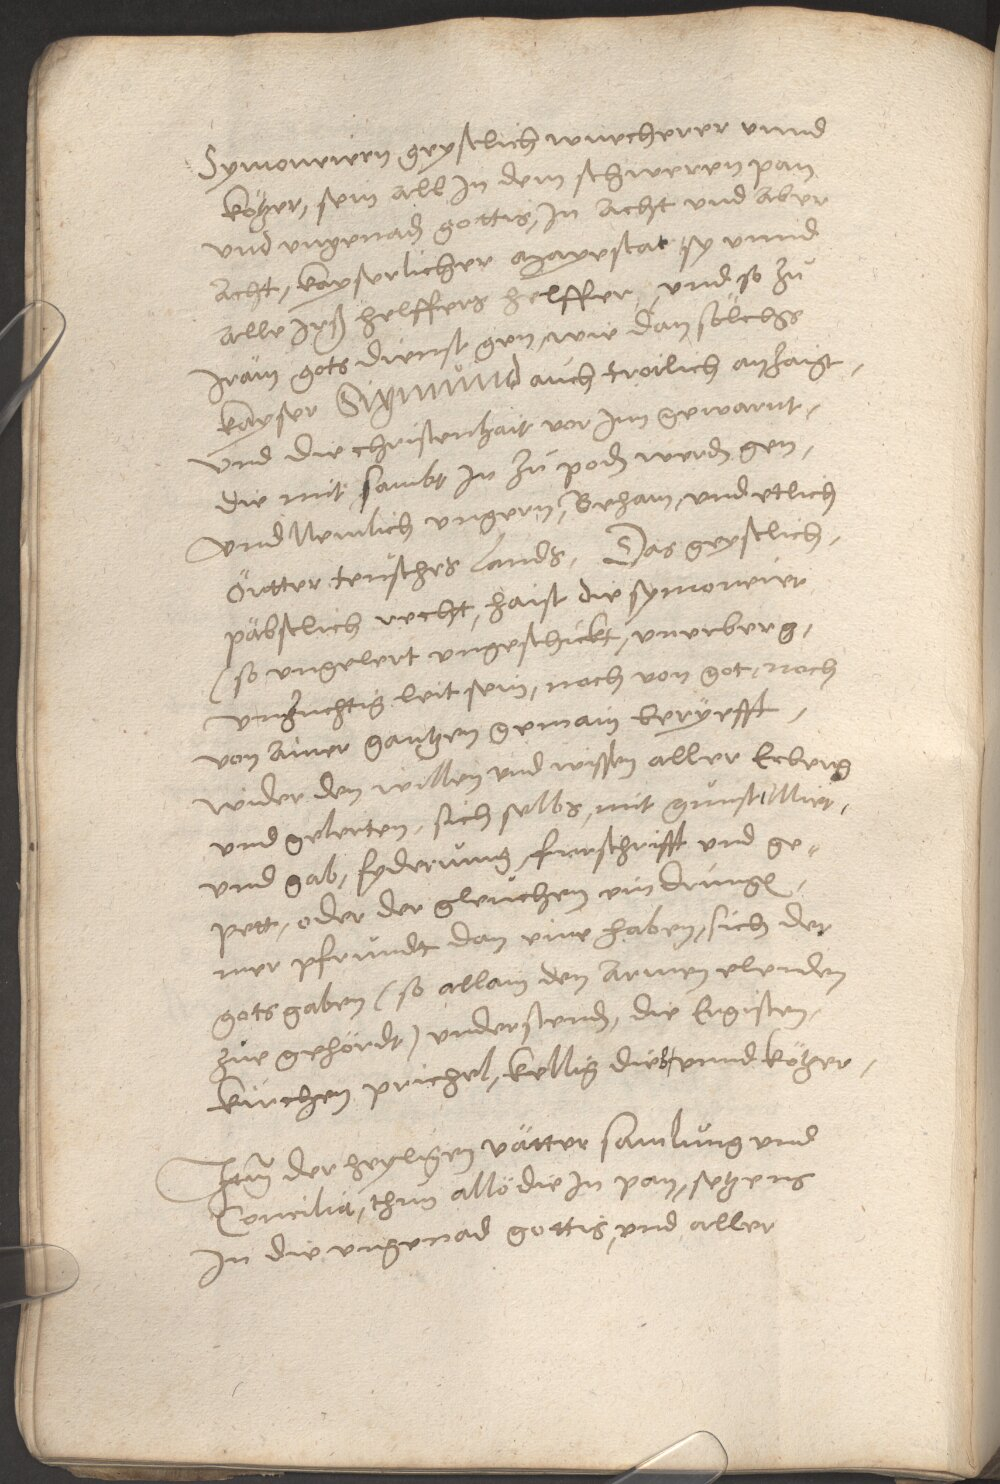 Symoneien geystlich wuecherer vnnd
kötzer, sein all In dem schweren pan
vnd vngenad gottis, In Acht vnd Aber
Acht, kayserlicher Mayestat sy vnnd
alle Irß helffers helffer, vnd so zů
Iräm gots dienst gen, wie dan sölchs
kayser Sigmund auch troilich anzaigt,
Vnd die christenhait vor Im gewarnt,
die mit sambt In zů podn werdn gen,
vnd Nemlich vngern, Beham, vnd etlich
Örtter teusches Lands. Das geystlich,
päbstlich recht, haist die symoneier
(so vngelert vngeschickt, vnerberg,
vnzuchtig leit sein, noch von got, noch
von Ainer gantzen gemain beryefft,
wider den willen vnd wissen aller Erberg
vnd gelerten, sich selbs, mit gunst Miet,
vnd gab, fyderung, fürschrifft vnd ge-
pett, oder der gleichen ein dringen,
mer pfrundt dan eine haben, sich der
gots gaben (so allain den Armen elenden
zue gehördt) vnderstend, die Ergisten,
kirchen prichel, kellig dieb, vnnd kötzer,
Item der heyligen vätter samlung vnd
Concilia, thun all die In pan, setzens
In die vngenad gottis, vnd aller